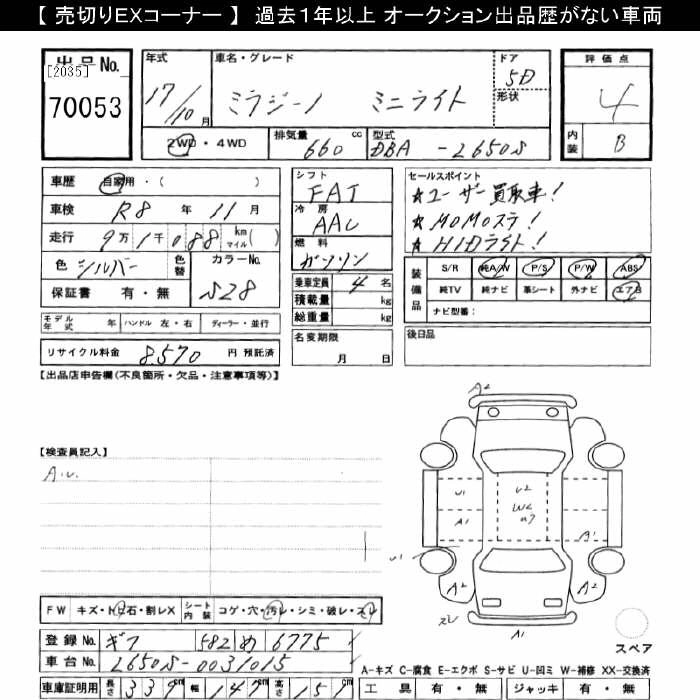 【 売切りEXコーナー 】 過去1年以上 オークション出品歴がない車両
出品No.
[2035]
70053
年式 車名・グレード ドア 評価点
17/10月 ミラジーノ ミニライト 5D 4
形状
2WD・4WD 排気量 660 cc 型式 DBA-L650S 内装 B
車歴 自家用・( )
車検 R8 年 11 月
走行 9万1千088 km マイル( )
色 シルバー 色替 カラーNo. S28
保証書 有・無
シフト FAT
冷房 AAC
燃料 ガソリン
乗車定員 4 名
積載量 kg
総重量 kg
名変期限 月 日
セールスポイント
★ユーザー買取車!
★MOMOステ!
★HIDライト!
装備品 S/R 純A/W P/S P/W ABS
純TV 純ナビ 革シート 外ナビ エアB
ナビ型番:
モデル年式 年 ハンドル 左・右 ディーラー・並行
後日品
リサイクル料金 8,570 円 預託済
【出品店申告欄(不良箇所・欠品・注意事項等)】
【検査員記入】
A2
U1 U2
A1 W2 A1
U1 A2 A2
A1
スペア
FW キズ・ト石・割レX シート内装 コゲ・穴・汚レ・シミ・破レ・スレ
登録No. ギフ 582 め 6775
車台No. L650S-0031015
車庫証明用 長さ 339cm 幅 147cm 高さ 151cm
A-キズ C-腐食 E-エクボ S-サビ U-凹ミ W-補修 XX-交換済
工具 有・無 ジャッキ 有・無